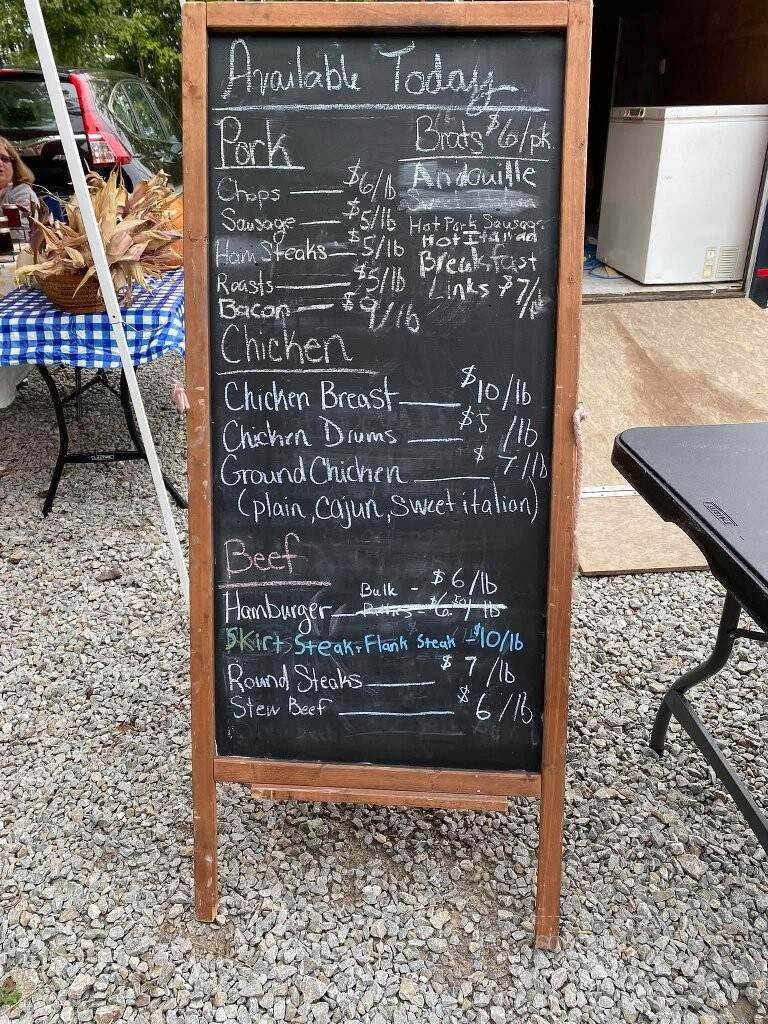 Available Today
Pork
Chops $6/lb
Sausage $5/lb
Ham Steaks $5/lb
Roasts $5/lb
Bacon $9/lb
Brats $6/pk.
Andouille
Hot Pork Sausage
Hot Italian
Breakfast
Links $7/
Chicken
Chicken Breast $10/lb
Chicken Drums $5/lb
Ground Chicken $7/lb
(plain, Cajun, Sweet italion)
Beef
Bulk - $6/lb
Hamburger Patties - $6.50/lb
Skirt Steak + Flank Steak - $10/lb
Round Steaks $7/lb
Stew Beef $6/lb
LIFETIME